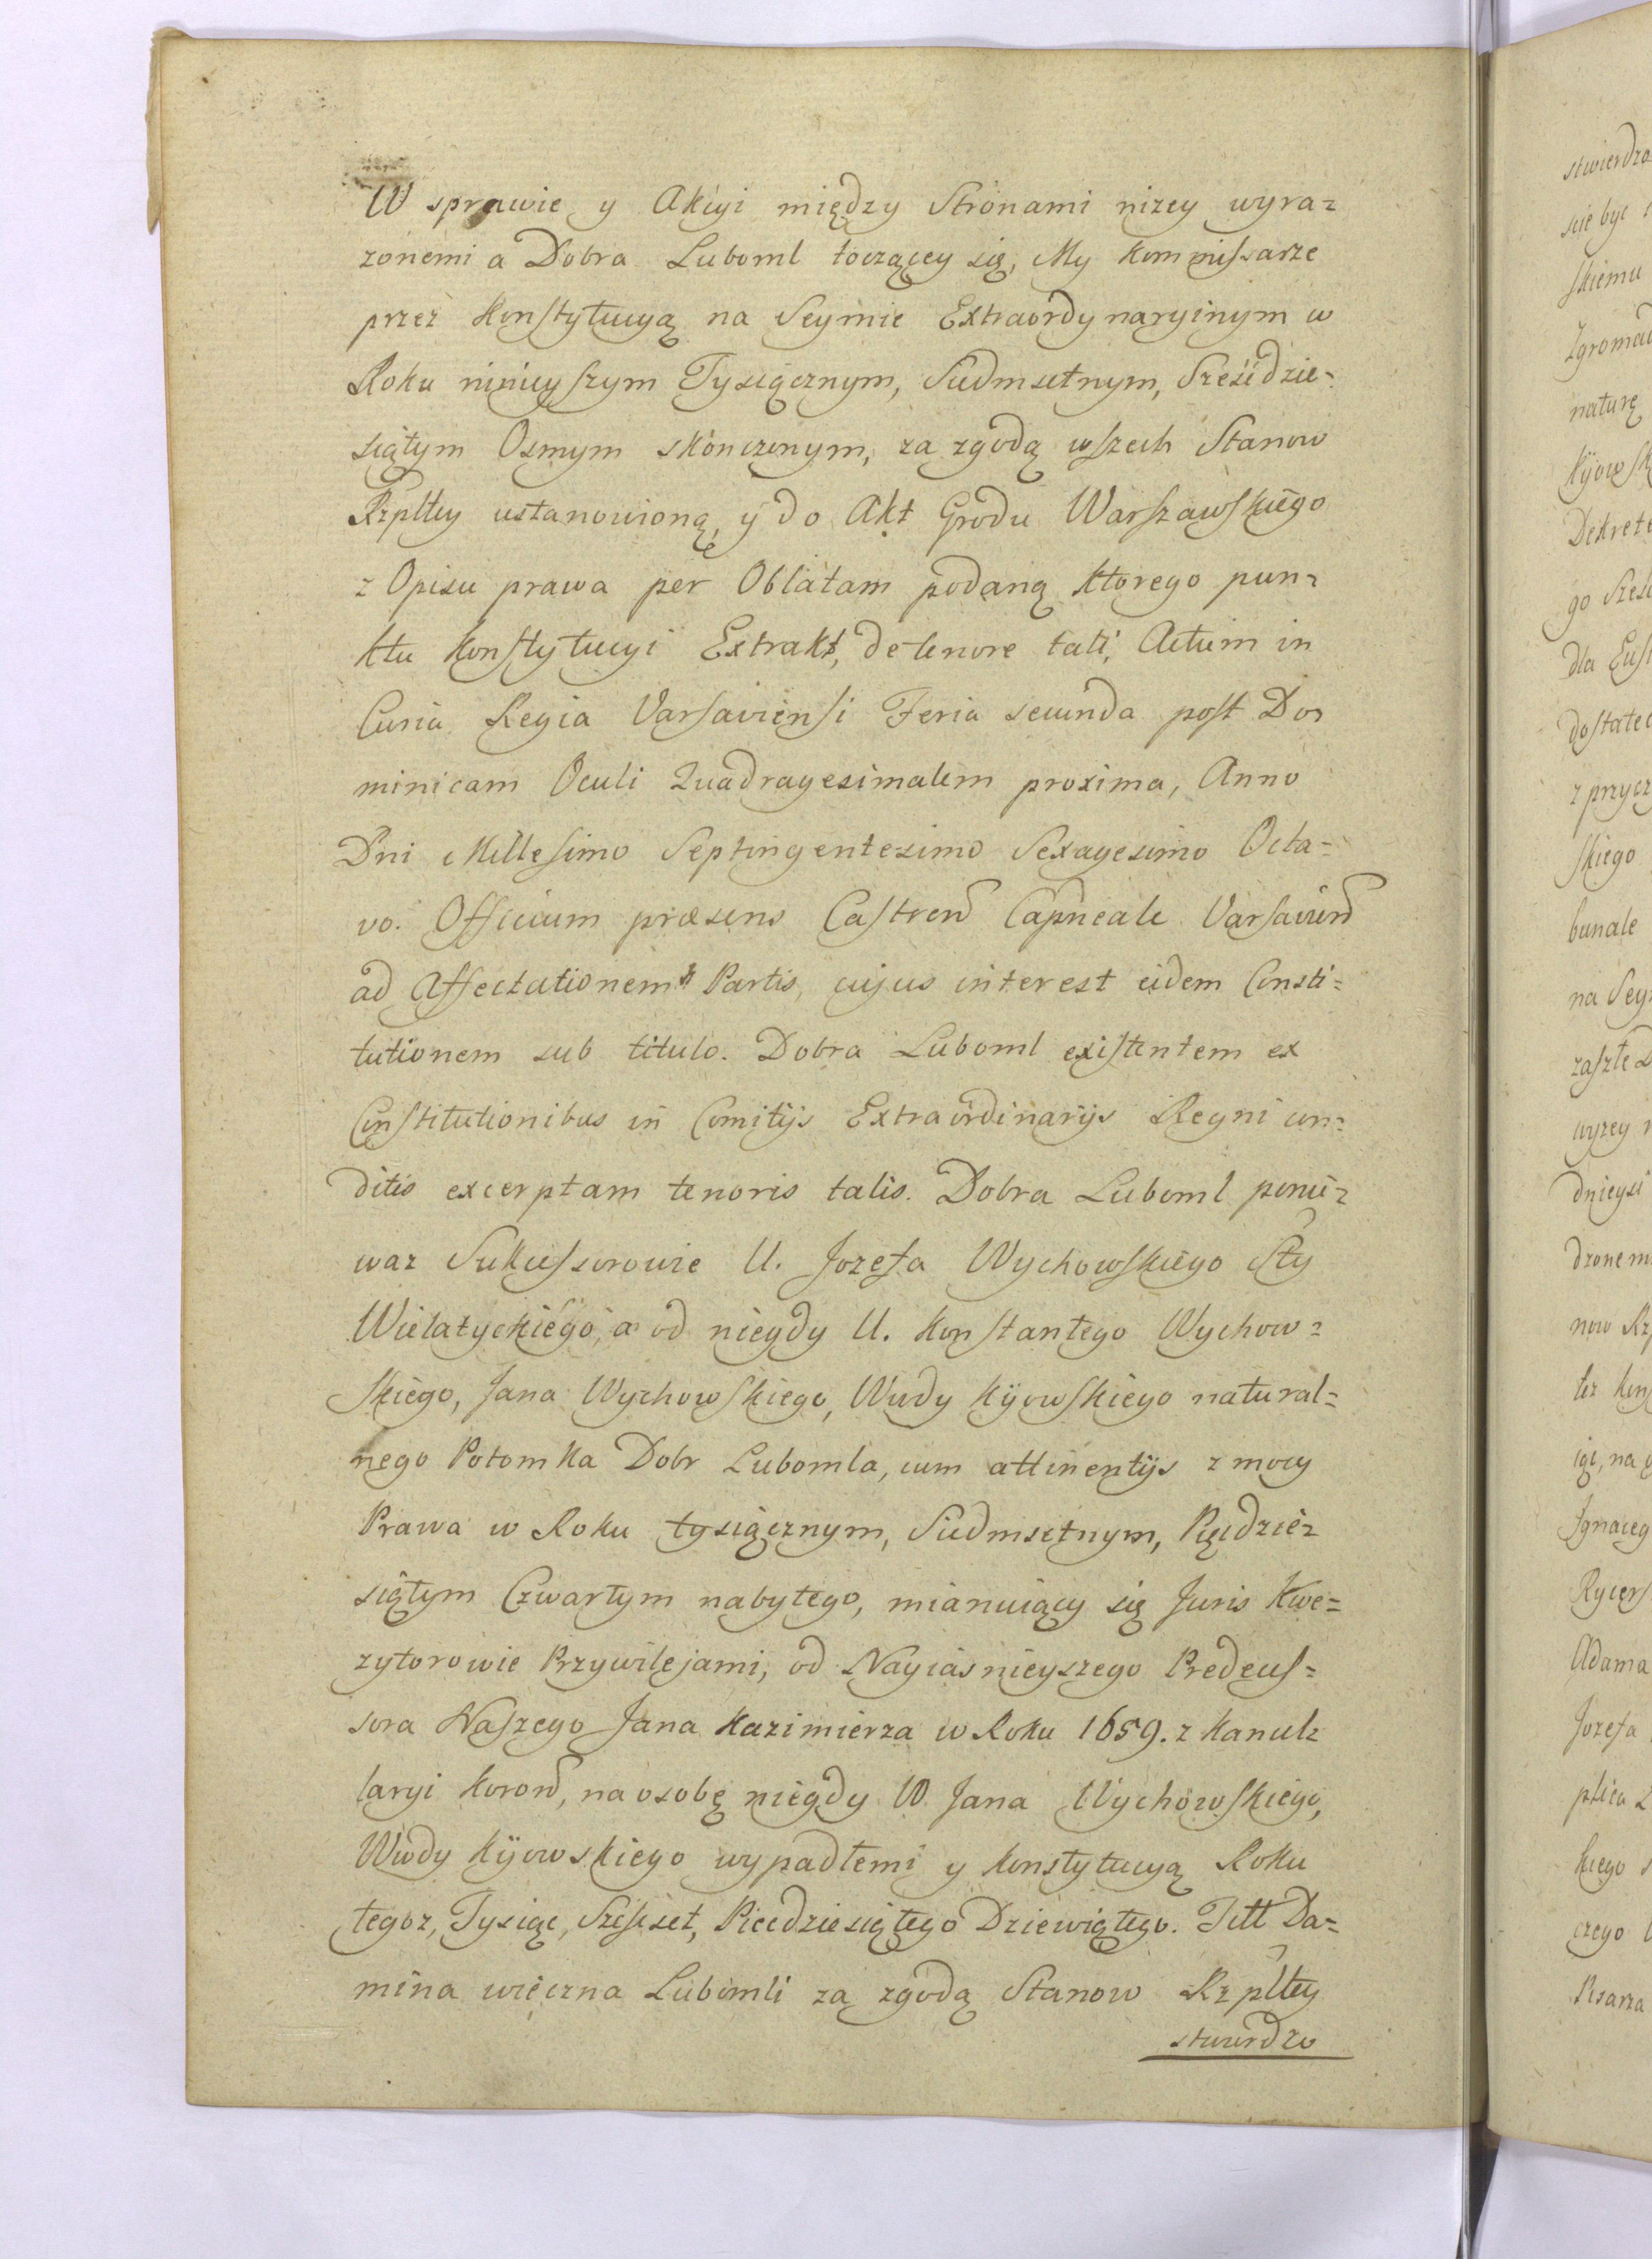 W sprawie y Akcyi między Stronami nizey wyra=
zonemi a Dobra Luboml toczącey się, My Kommissarze
przez Konstytucyą na Seymie Extraordynaryinym w
Roku ninieyszym Tysiącznym, Siedmsetnym, Sześcdzie=
siątym Osmym skonczonym, za zgodą wszech Stanow
Rzpltey ustanowioną, y do Akt Grodu Warszawskiego
z Opisu prawa per Oblatam podaną ktorego pun=
ktu Konstytucyi Extrakt, de tenore tali, Actum in
Curia Regia Varsaviensi Feria secunda post Do=
minicam Oculi Quadragesimalem proxima, Anno
Dni Millesimo Septingentesimo Sexagesimo Octa=
vo. Officium præsens Castren Capneale Varsavien
ad Affectationem Partis, cujus interest eidem Consti=
tutionem sub titulo. Dobra Luboml existentem ex
Constitutionibus in Comitijs Extraordinarijs Regni con=
ditis excerptam tenoris talis. Dobra Luboml ponie=
waz Sukcessorowie U. Jozefa Wychowskiego Sty
Wielatyckiego, a od niegdy U. Konstantego Wychow=
skiego, Jana Wychowskiego, Wwdy Kijowskiego natural=
nego Potomka Dobr Lubomla, cum attinentijs z mocy
Prawa w Roku tysiącznym, Siedmsetnym, Pięcdzie=
siątym Czwartym nabytego, mianuiący się Juris Kwe=
zytorowie Przywilejami, od Nayiasnieyszego Predeces=
sora Naszego Jana Kazimierza w Roku 1659. z Kancel=
laryi Koron, na osobę niegdy W. Jana Wychowskiego,
Wwdy Kijowskiego wypadłemi y Konstytucyą Roku
tegoz, Tysiąc, Szesset, Piecdziesiątego Dziewiątego. Titt Da=
mina wieczna Lubomli za zgodą Stanow Rzpltey
stwierdzo